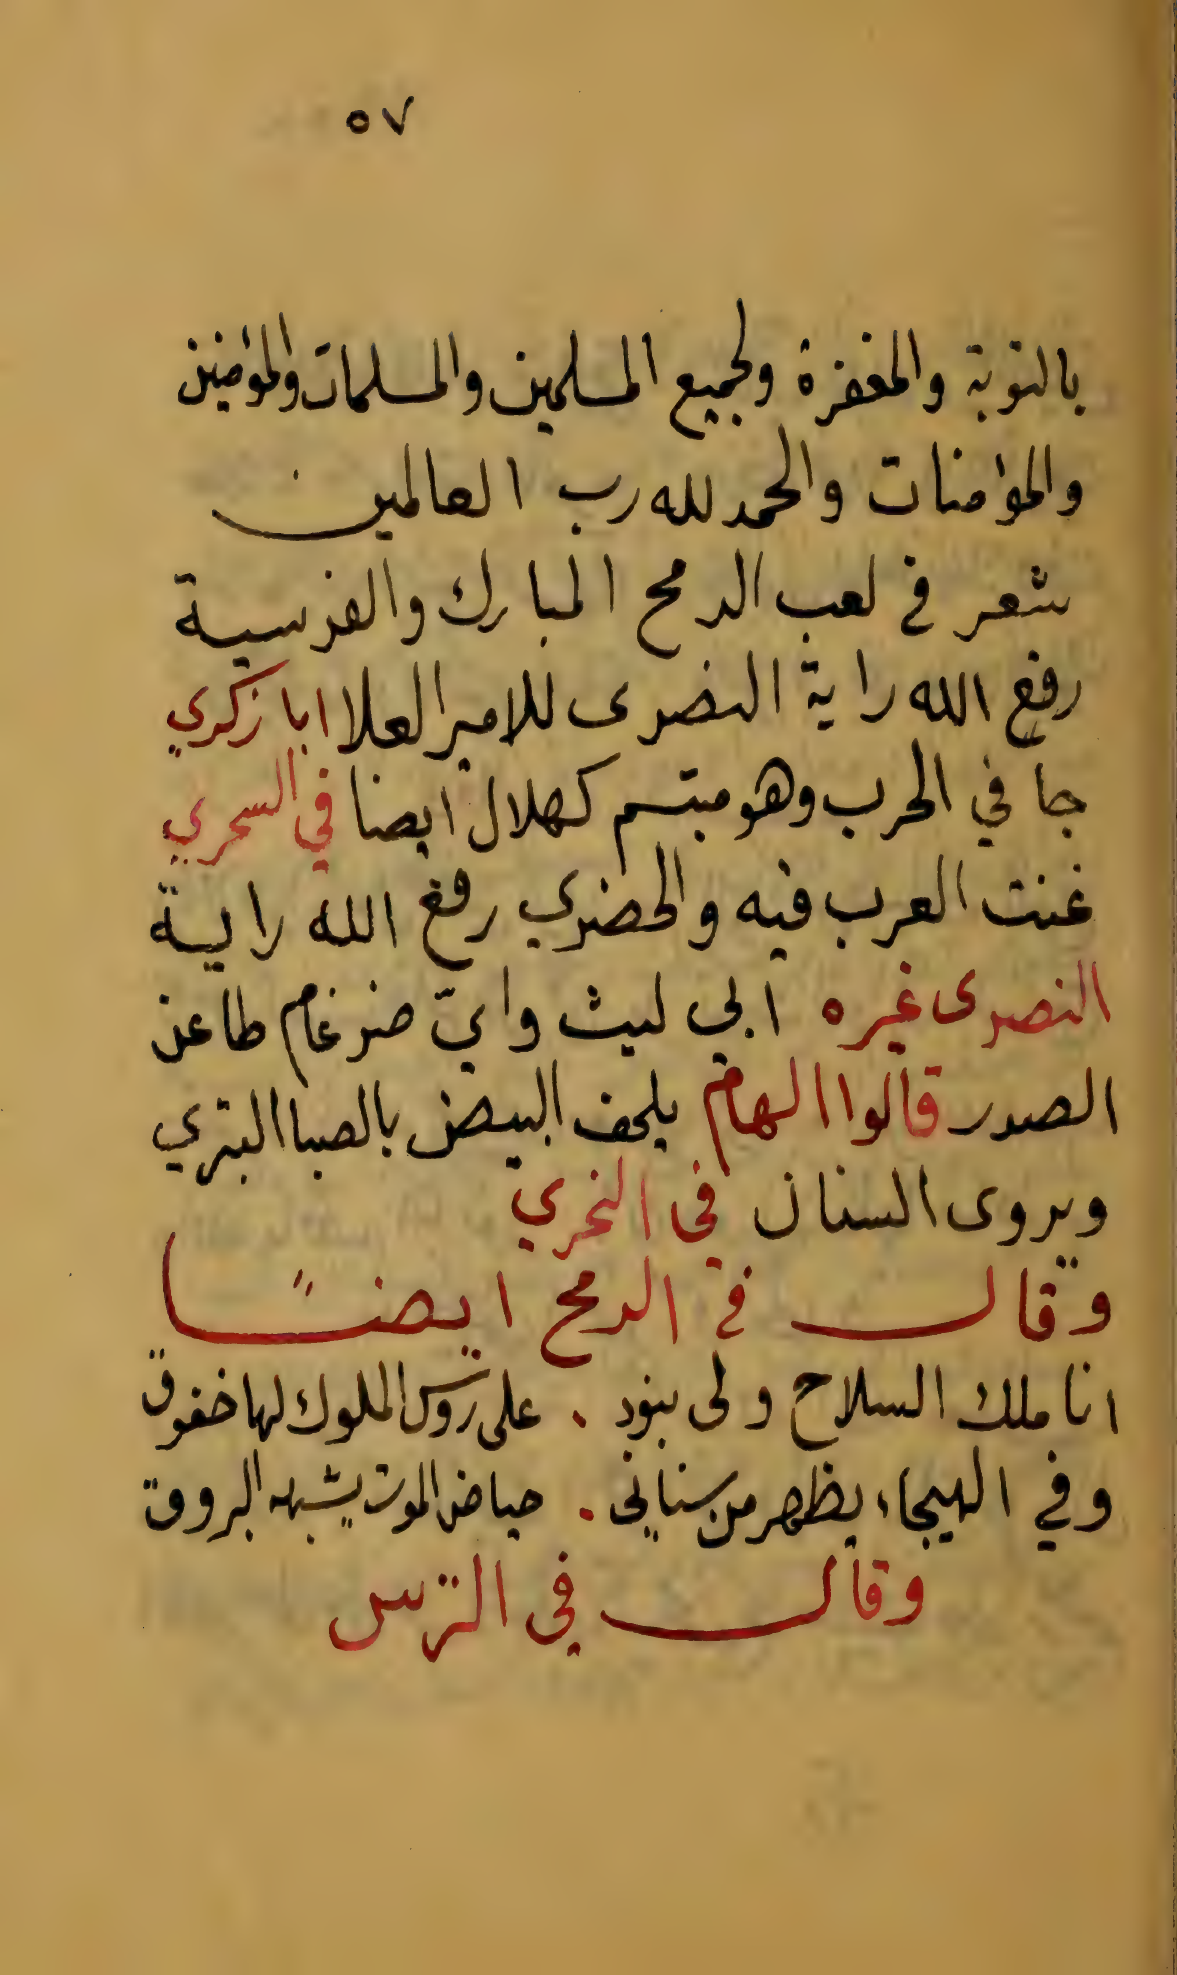 ٥٧
بالتوبة والمغفرة ولجميع المسلمين والمسلمات والمؤمنين
والمؤمنات والحمد لله رب العالمين
شعر في لعب الرمح المبارك والفرسية
رفع الله راية النصرى للامير العلا ابا زكري
جا في الحرب وهو مبتسم كهلال ايضا في السحري
غنت العرب فيه والحضري رفع الله راية
النصرى غيره ابي ليث وايّ ضرغام طاعن
الصدر قالوا الهام يلحف البيض بالصبا البتري
ويروى السنان في النحري
وقال في الرمح ايضًا
انا ملك السلاح ولى بنود . على روس الملوك لها خفوق
وفي الهيجاء يظهر من سناني . حياض الموت يشبه البروق
وقال في الترس